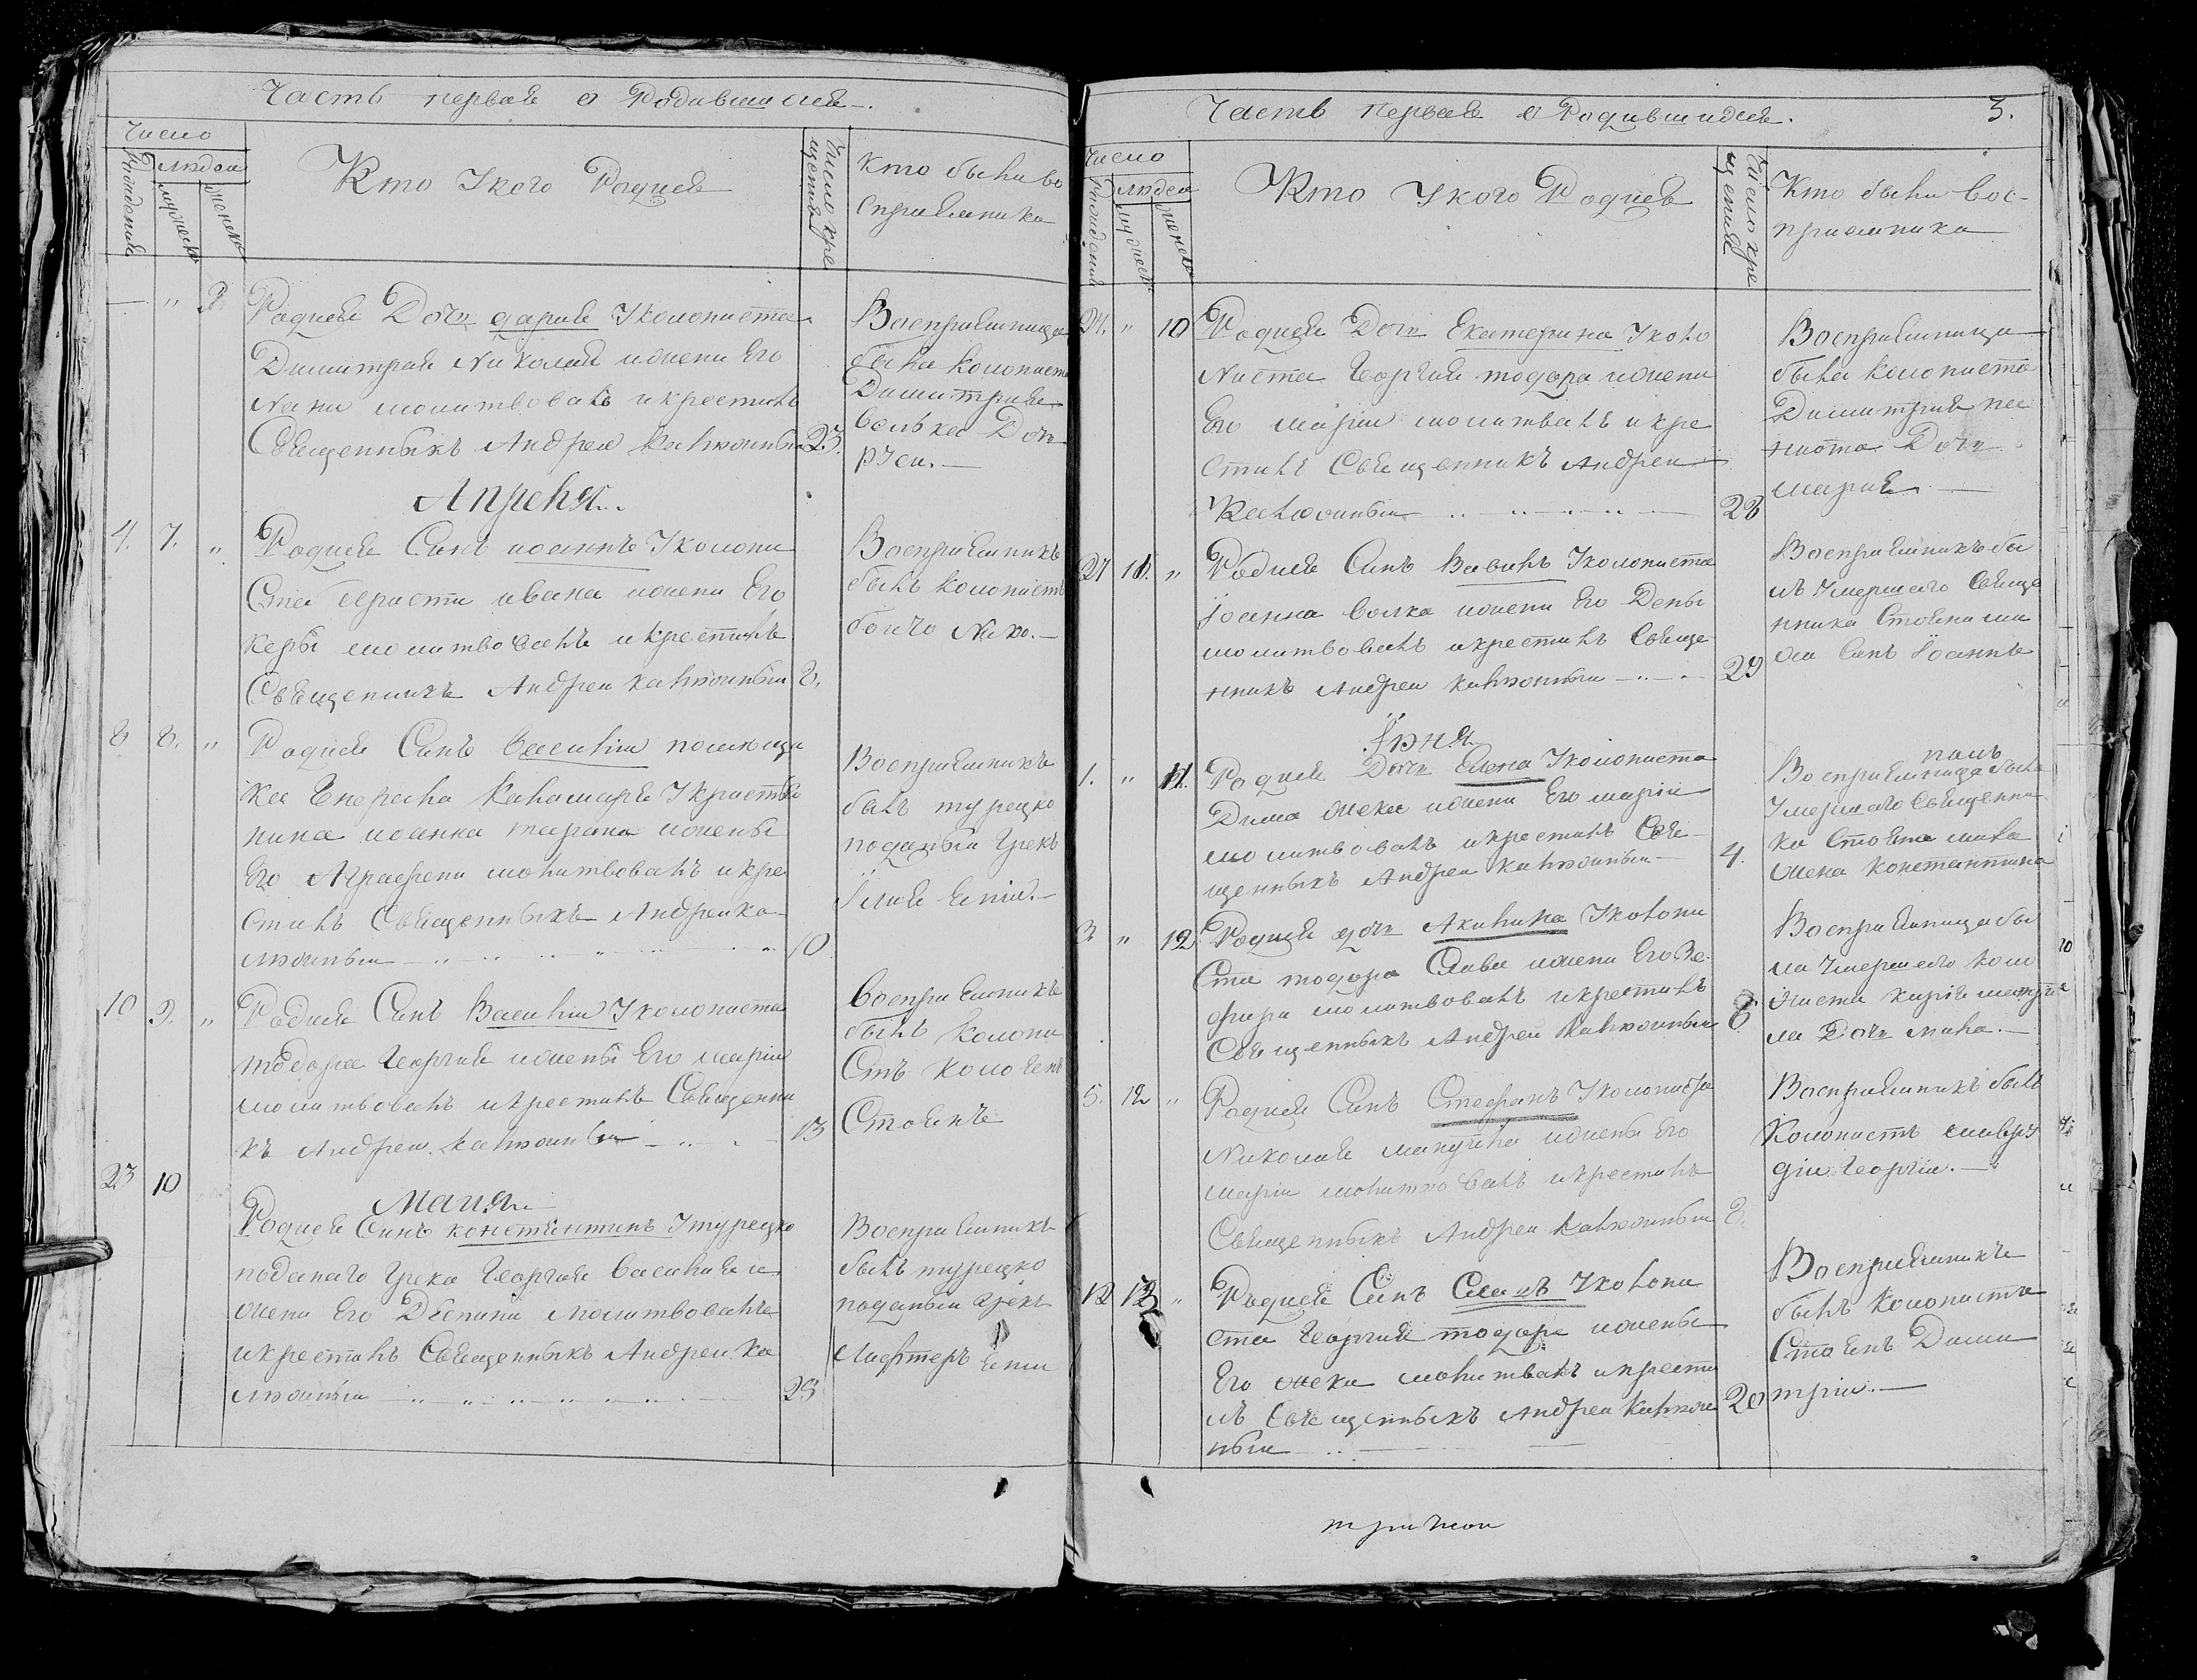 Часть первая о Родившихся.
Число
Рождения
Людей
мужеск
женск
Кто Укого Родися
Число кре
щения
Кто были во
сприемники
— " 3 Родися Дочь дария Уколониста
Димитрия Николая ижени Его
Нени молитвовалъ икрестилъ
Священныкъ Андреи Калюжныи 23.
Восприемница
была колониста
Димитрия
волкса Дочь
Апреля.
4. 7. " Родися Синъ иоаннъ Уколони
ста ивана ижени Его
керы молитвовалъ икрестилъ
Священникъ Андреи калюжныи 8.
Восприемникъ
былъ колонистъ
8 8. " Родися Синъ василіи помещи
ка Укрестья
нина иоанна тарана ижены
Его Аграфени молитвовалъ икре
стилъ Священныкъ Андреи ка
люжныи 10
Восприемникъ
былъ турецко
поданыи Грекъ
10 9. " Родися Синъ Василіи Уколониста
тодора Георгия ижены Его маріи
молитвовалъ икрестилъ Священни
къ Андреи Калюжныи 13
Восприемникъ
былъ колони
стъ
Стоянъ
23 10
Маия.
Родися Синъ константинъ Утурецко
поданаго Грека Георгия василия и
жени Его Деспини молитвовалъ
икрестилъ Священныкъ Андреи ка
люжныи 25
Восприемникъ
былъ турецко
поданыи Грекъ
Часть первая о Родившихся. 3.
Число
Рождения
Людей
мужеск
женск
Кто Укого Родися
Число кре
щения
Кто были вос-
приемники
24. " 10 Родися Дочь Екатерина Уколо
ниста Георгия тодора ижени
Его маріи молитвалъ икре
стилъ Священникъ Андреи
Калюжныи 28
Восприемница
была колониста
Димитрия
Дочь
мария
27 11. " Родися Синъ Вавилъ Уколониста
Іоанна волка ижени Его Дены
молитвовалъ икрестилъ Свяще
нникъ Андреи калюжныи 29
Восприемникъ бы
лъ Умершаго Свяще
нника Стояна
Синъ Іоаннъ
Іюня.
1. " 11. Родися Дочь Елена Уколониста
Дима жека ижени Его маріи
молитвовалъ икрестилъ Свя
щенныкъ Андреи калюжныи 4.
Восприемница была
Умершаго Священни
ка Стояна
жена константина
3 " 12 Родися дочь Акилина Уколони
ста тодора Слави ижени Его Зе
фири молитвовалъ икрестилъ
Священныкъ Андреи калюжныи 6
Восприемница бы
ла Умершего коло
ниста кирія
ла Дочь мика.
5. 12 " Родися Синъ Стефанъ Уколониста
Николая ижены Его
маріи молитвовалъ икрестилъ
Священныкъ Андреи Калюжныи 8.
Восприемникъ былъ
Колонистъ
діи Георгіи.
12 13 " Родися Синъ Уколони
ста Георгия тодора ижены
Его жеки молитвалъ икрести
лъ Священныкъ Андреи Калюж
ныи 20
Восприемникъ
былъ колониста
Стоянъ Дими
тріи.